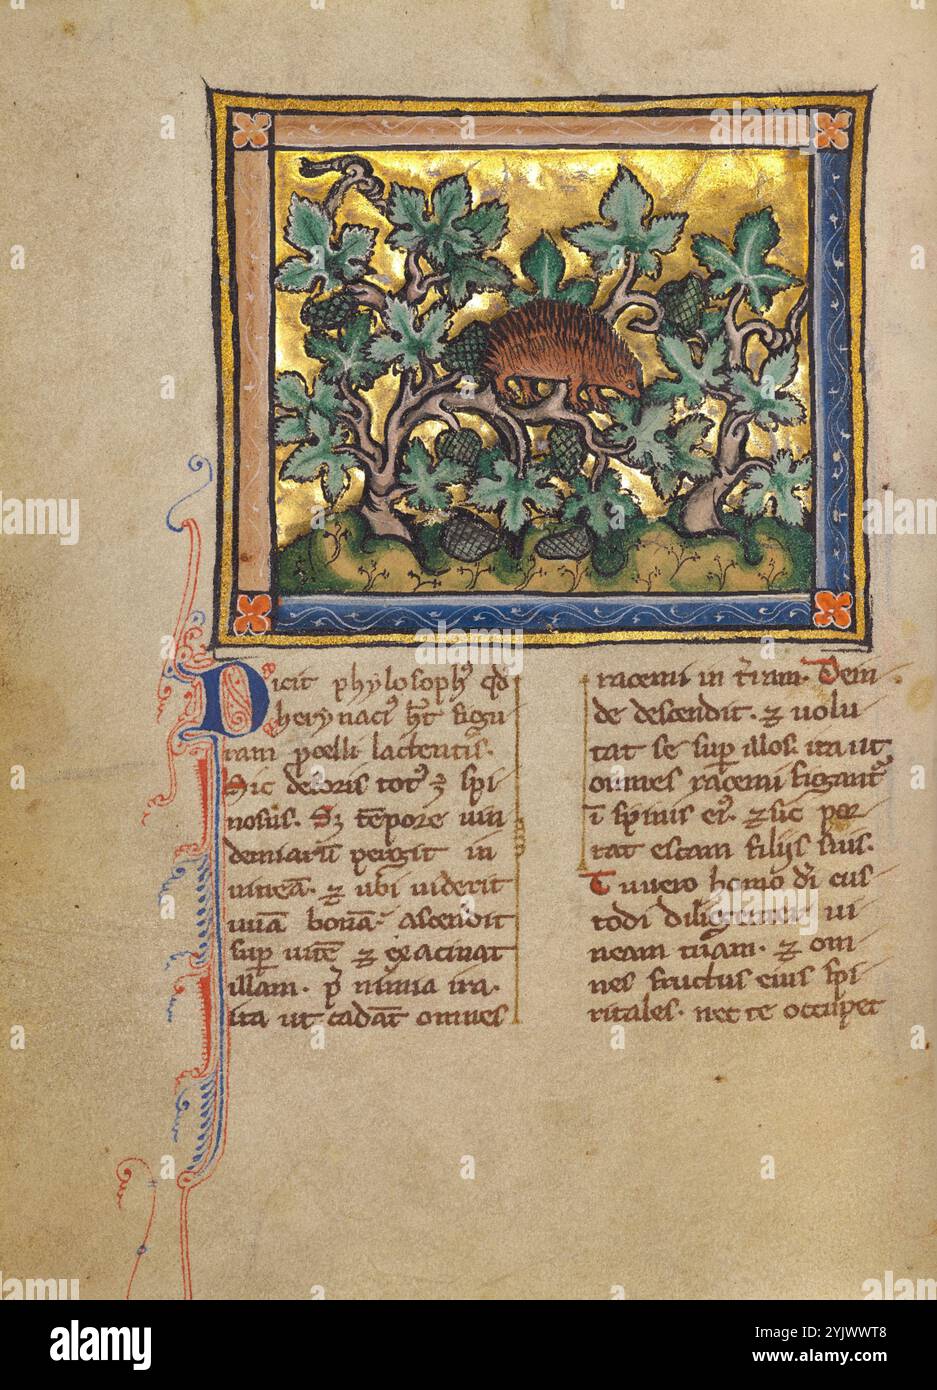 Dicit phylosoph' qd
herynaci' ht figu
ram pcelli lactentis.
Sic deforis tot' ē spi
nosus. Sꝫ tēpore vin
demiarū pergit in
vineā. ⁊ ubi viderit
uvā bonā ascendit
sup vitē ⁊ exacinat
illam. nimia ira.
ita ut cadāt omnes
racemi in tram. Dein
de descendit. ⁊ volu
tat se sup illos. ita ut
omnes racemi figant'
ī spinis ei'. ⁊ sic por
tat escam filijs suis.
Tu vero homo di cus
todi diligenter vi
neam tuam. ⁊ om
nes fructus eius spi
ritales. nec te occupet
alamy
Image ID: 2YJWWT8
www.alamy.com